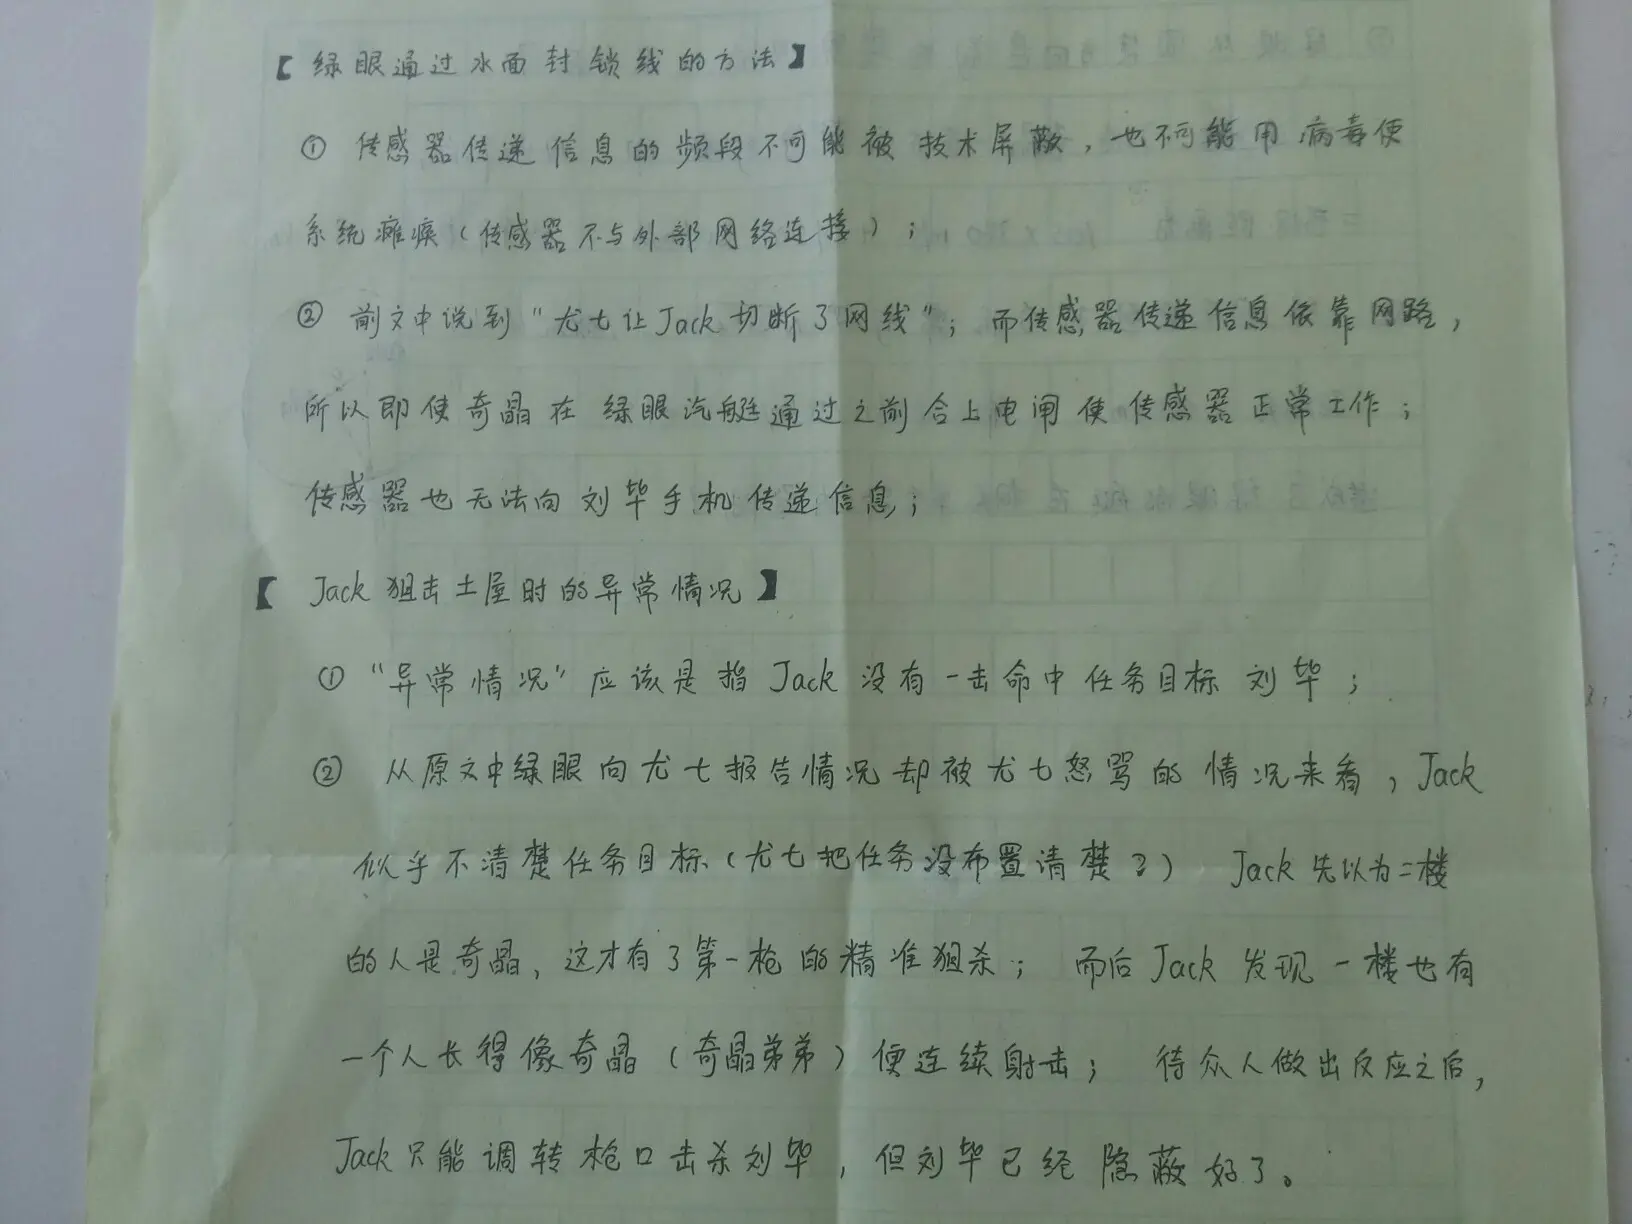 【绿眼通过水面封锁线的方法】
① 传感器传递信息的频段不可能被技术屏蔽，也不可能用病毒使
系统瘫痪（传感器不与外部网络连接）；
② 前文中说到“尤七让Jack切断了网线”；而传感器传递信息依靠网路，
所以即使奇晶在绿眼汽艇通过之前合上电闸使传感器正常工作；
传感器也无法向刘毕手机传递信息；
【Jack狙击土屋时的异常情况】
① “异常情况”应该是指Jack没有一击命中任务目标刘毕；
② 从原文中绿眼向尤七报告情况却被尤七怒骂的情况来看，Jack
似乎不清楚任务目标（尤七把任务没布置清楚？）Jack先以为二楼
的人是奇晶，这才有了第一枪的精准狙杀；而后Jack发现一楼也有
一个人长得像奇晶（奇晶弟弟）便连续射击；待众人做出反应之后，
Jack只能调转枪口击杀刘毕，但刘毕已经隐蔽好了。